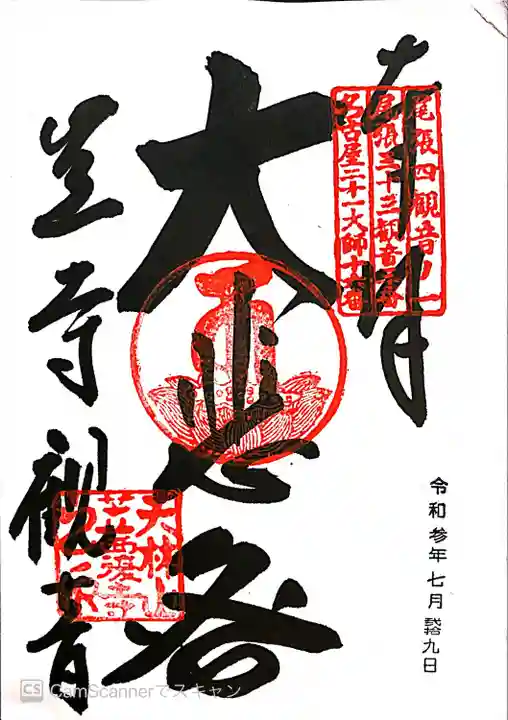 奉拝
尾張四観音ノ一
尾張三十三観音三番
名古屋二十一大師十六番
大悲閣
令和参年七月九日
笠寺観音
天林山
CS CamScannerでスキャン